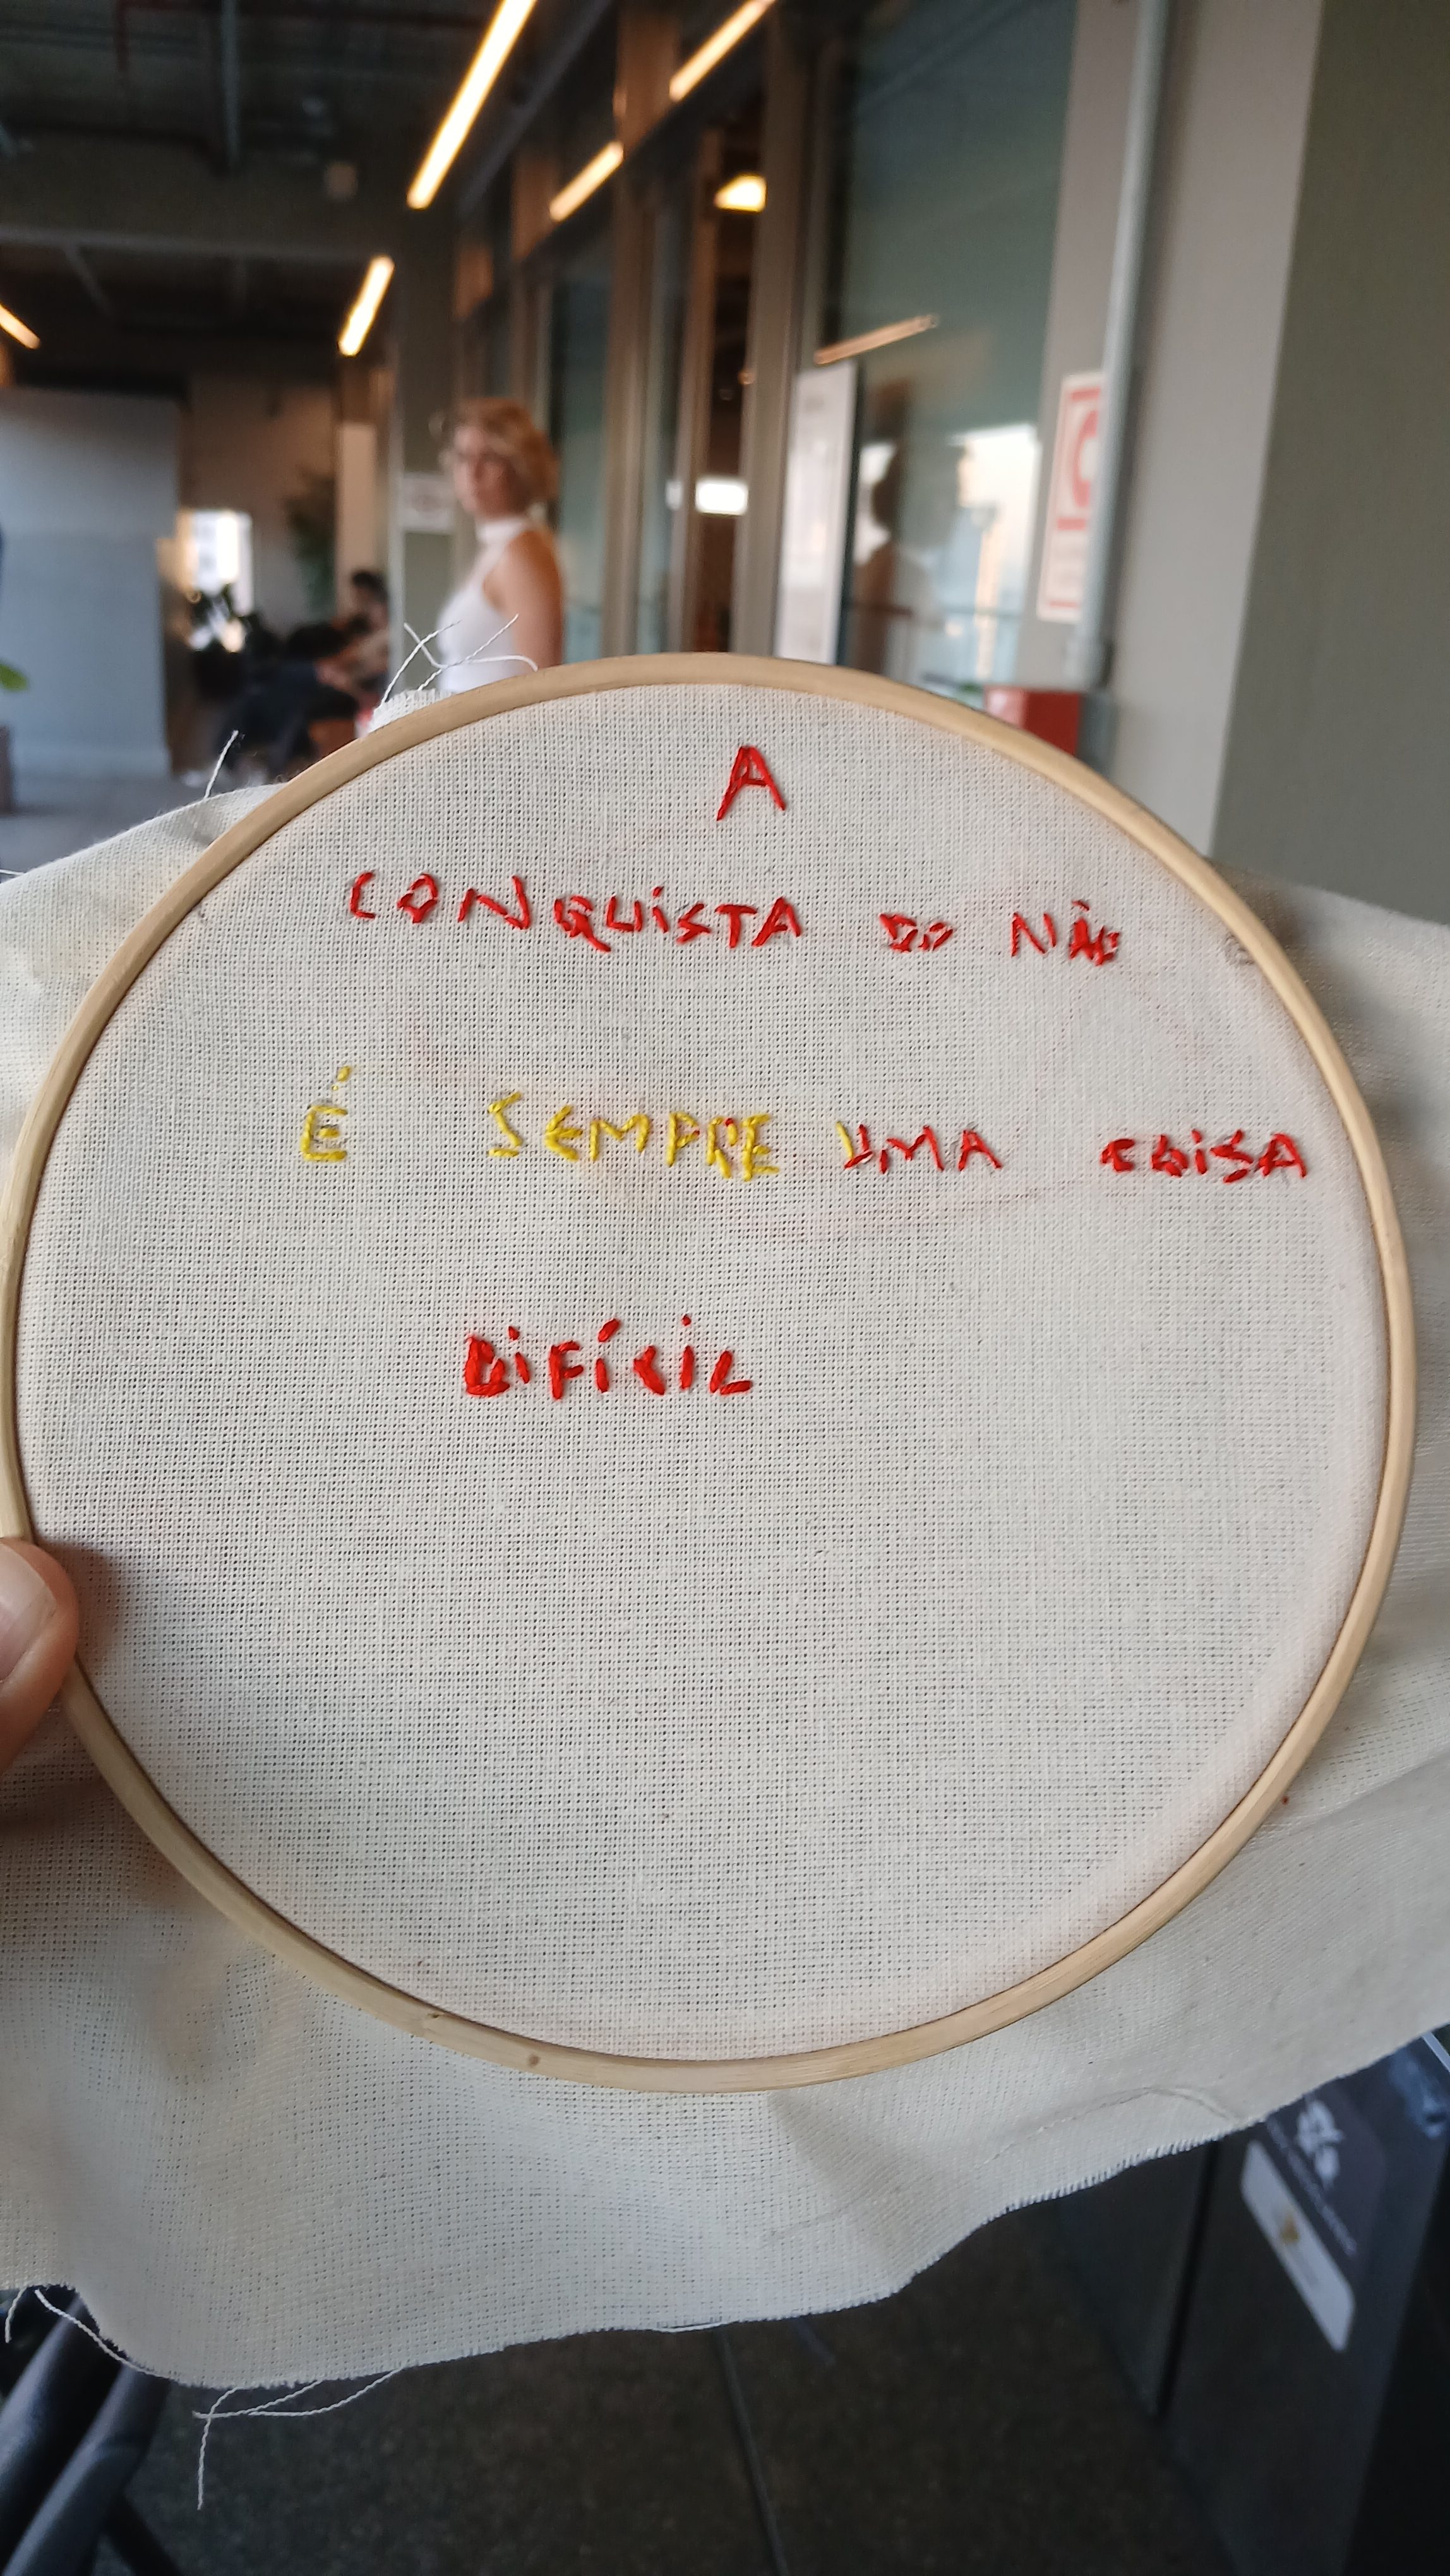 A
CONQUISTA DO NÃO
É SEMPRE UMA COISA
DIFÍCIL